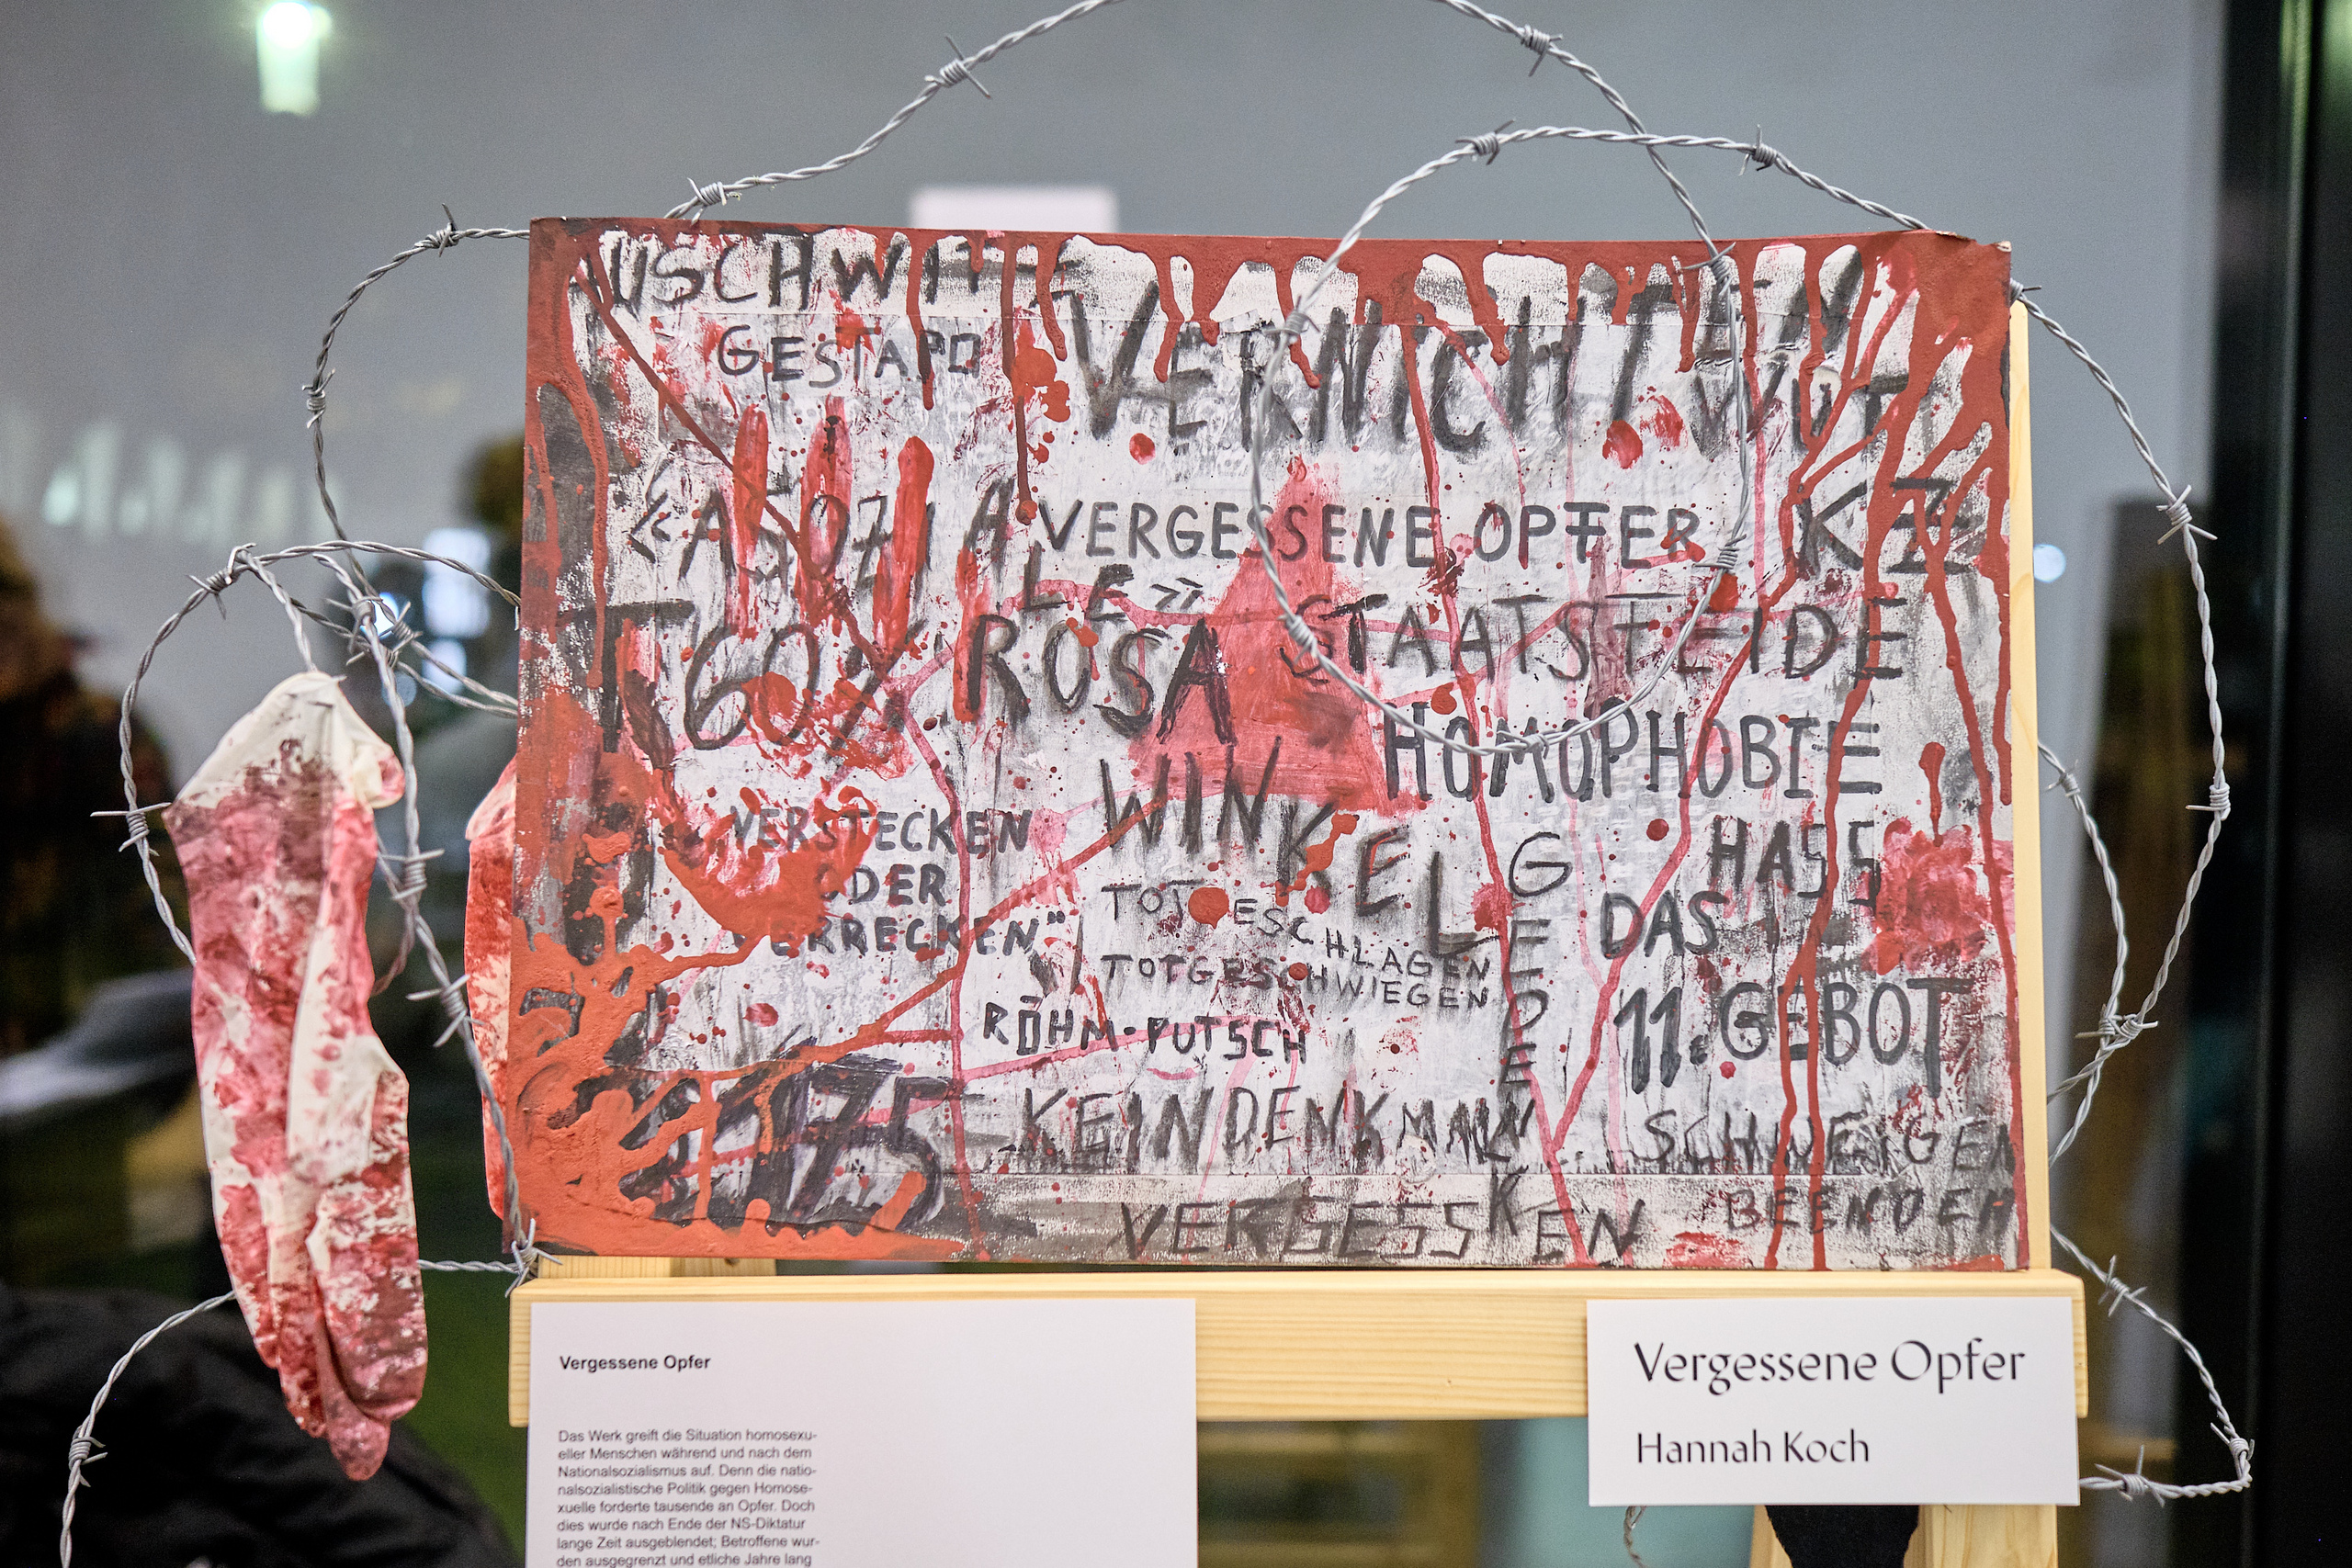 AUSCHWITZ
GESTAPO
VERNICHTEN
WUT
«ASOZIALE»
VERGESSENE OPFER
KZ
T. 60%
ROSA
WINKEL
STAATSFEINDE
HOMOPHOBIE
VERSTECKEN
ODER
VERRECKEN"
TOTGESCHLAGEN
TOTGESCHWIEGEN
GEDENKEN
HASS
DAS
11. GEBOT
RÖHM-PUTSCH
§175
KEIN DENKMAL
SCHWEIGEN
BEENDEN
VERGESSEN
Vergessene Opfer
Das Werk greift die Situation homosexu-
eller Menschen während und nach dem
Nationalsozialismus auf. Denn die natio-
nalsozialistische Politik gegen Homose-
xuelle forderte tausende an Opfer. Doch
dies wurde nach Ende der NS-Diktatur
lange Zeit ausgeblendet; Betroffene wur-
den ausgegrenzt und etliche Jahre lang
Vergessene Opfer
Hannah Koch